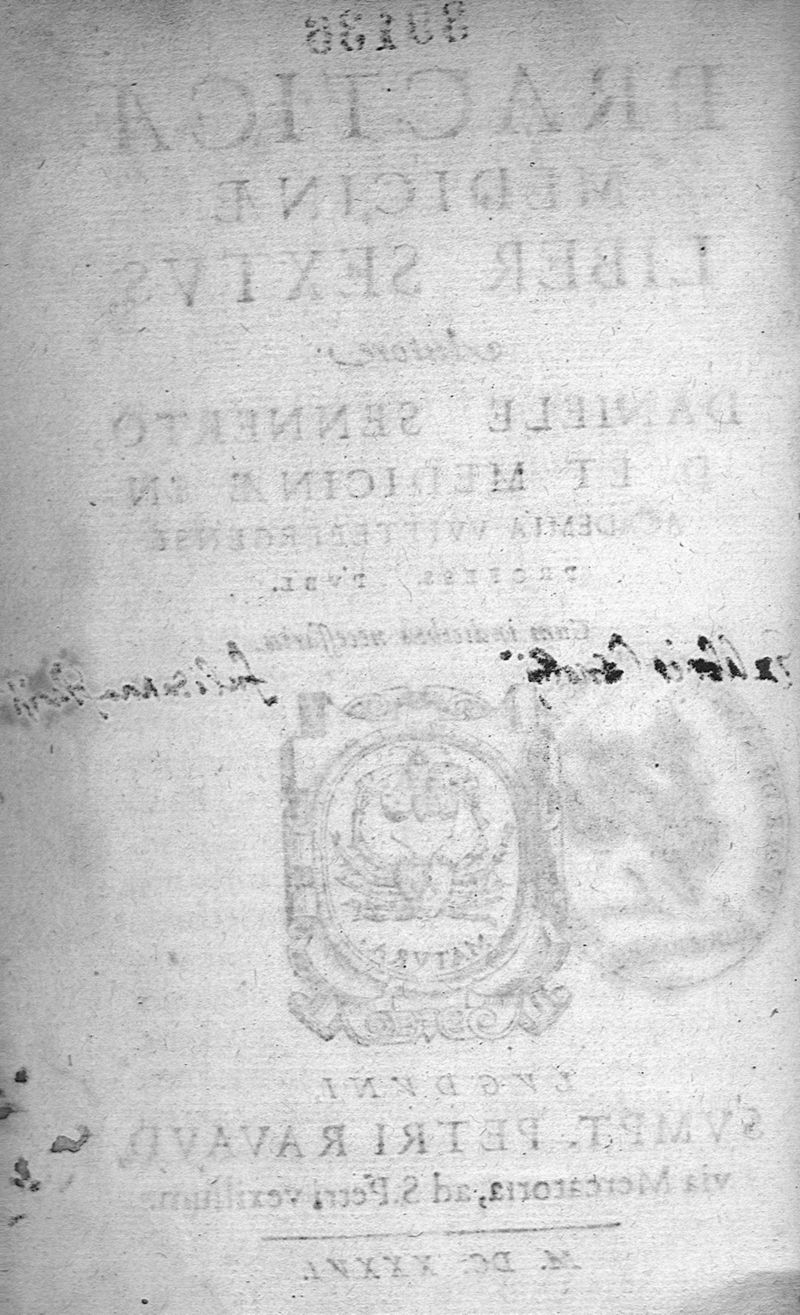 39136
PRACTICÆ
MEDICINÆ
LIBER SEXTVS
Autore
DANIELE SENNERTO,
D. ET MEDICINÆ IN
ACADEMIA VVITTEBERGENSE
PROFESS. PVBL.
Cum indicibus necessariis.
MATVRA
LVGDVNI,
SVMPT. PETRI RAVAVD,
via Mercatoria, ad S. Petri vexillum.
M. DC. XXXVI.